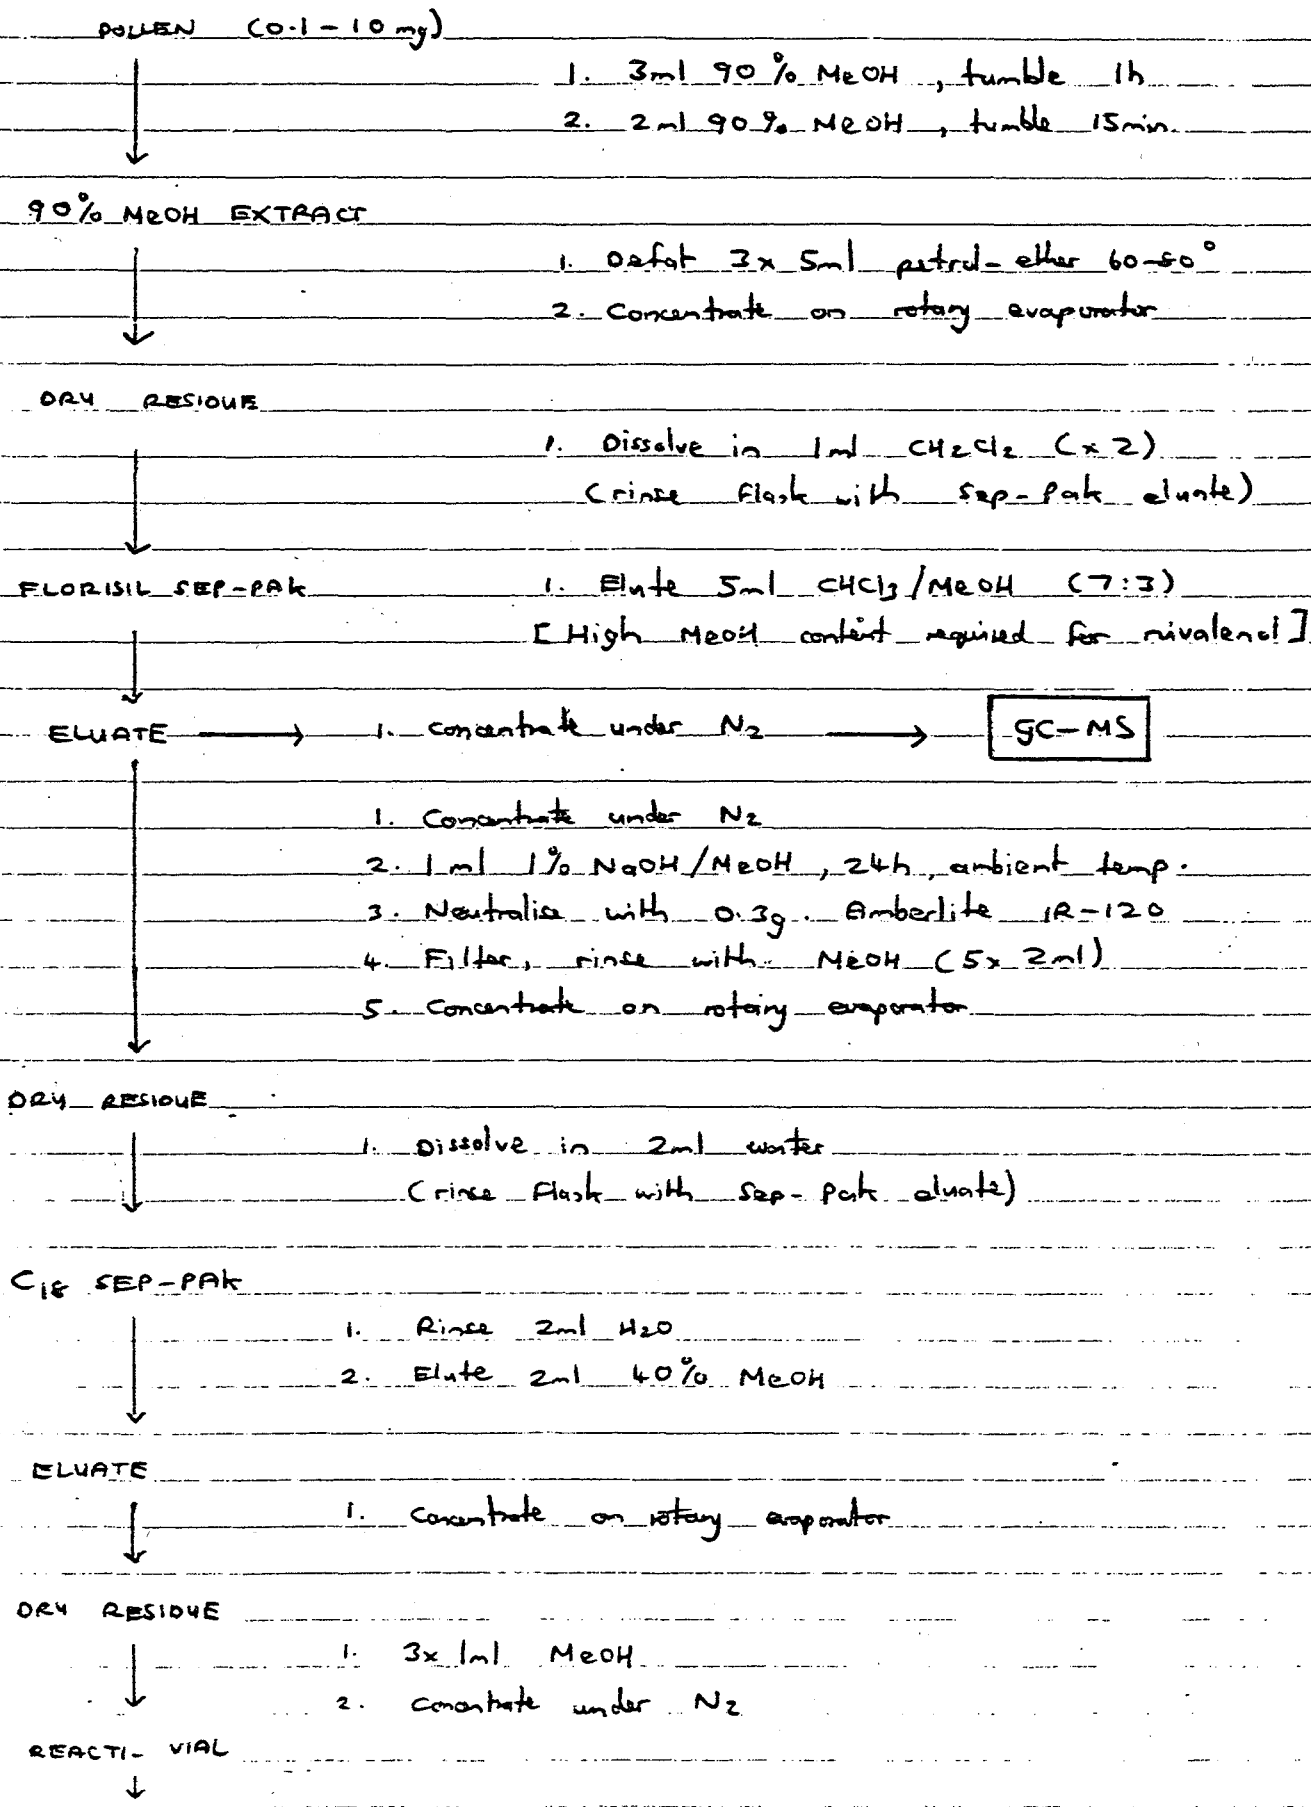 POLLEN (0.1-10 mg)
1. 3ml 90% MeOH, tumble 1h
2. 2ml 90% MeOH, tumble 15min.
90% MeOH EXTRACT
1. Defat 3x 5ml petrol-ether 60-80°
2. Concentrate on rotary evaporator
DRY RESIDUE
1. Dissolve in 1ml CH2Cl2 (x2)
(rinse flask with Sep-Pak eluate)
FLORISIL SEP-PAK 1. Elute 5ml CHCl3/MeOH (7:3)
[High MeOH content required for nivalenol]
ELUATE → 1. Concentrate under N2 → GC-MS
1. Concentrate under N2
2. 1ml 1% NaOH/MeOH, 24h, ambient temp.
3. Neutralise with 0.3g. Amberlite IR-120
4. Filter, rinse with MeOH (5x 2ml)
5. Concentrate on rotary evaporator
DRY RESIDUE
1. Dissolve in 2ml water
(rinse flask with Sep-Pak eluate)
C18 SEP-PAK
1. Rinse 2ml H2O
2. Elute 2ml 40% MeOH
ELUATE
1. Concentrate on rotary evaporator
DRY RESIDUE
1. 3x 1ml MeOH
2. Concentrate under N2
REACTI-VIAL